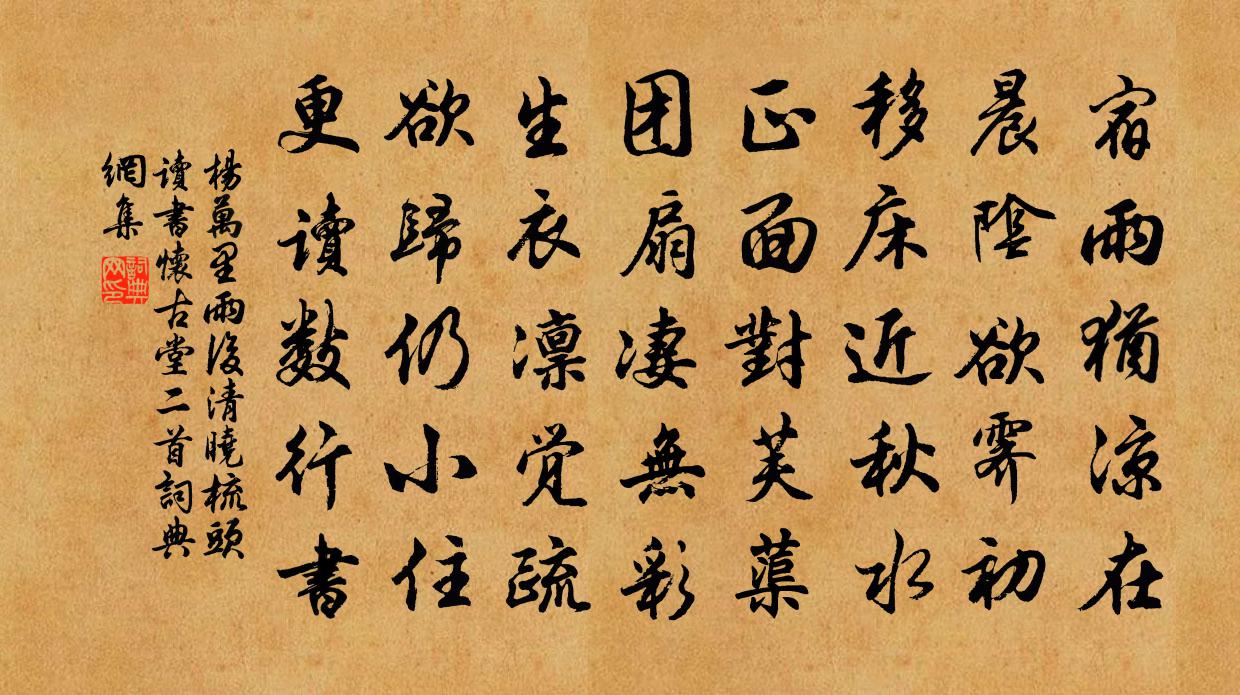 宿雨猶涼在
晨陰欲霽初
移床近秋水
正面對芙蕖
团扇凄無彩
生衣凛覚疏
欲歸仍小住
更讀数行書
楊萬里雨後清曉梳頭
讀書懷古堂二首詞典
網集
詞典網印